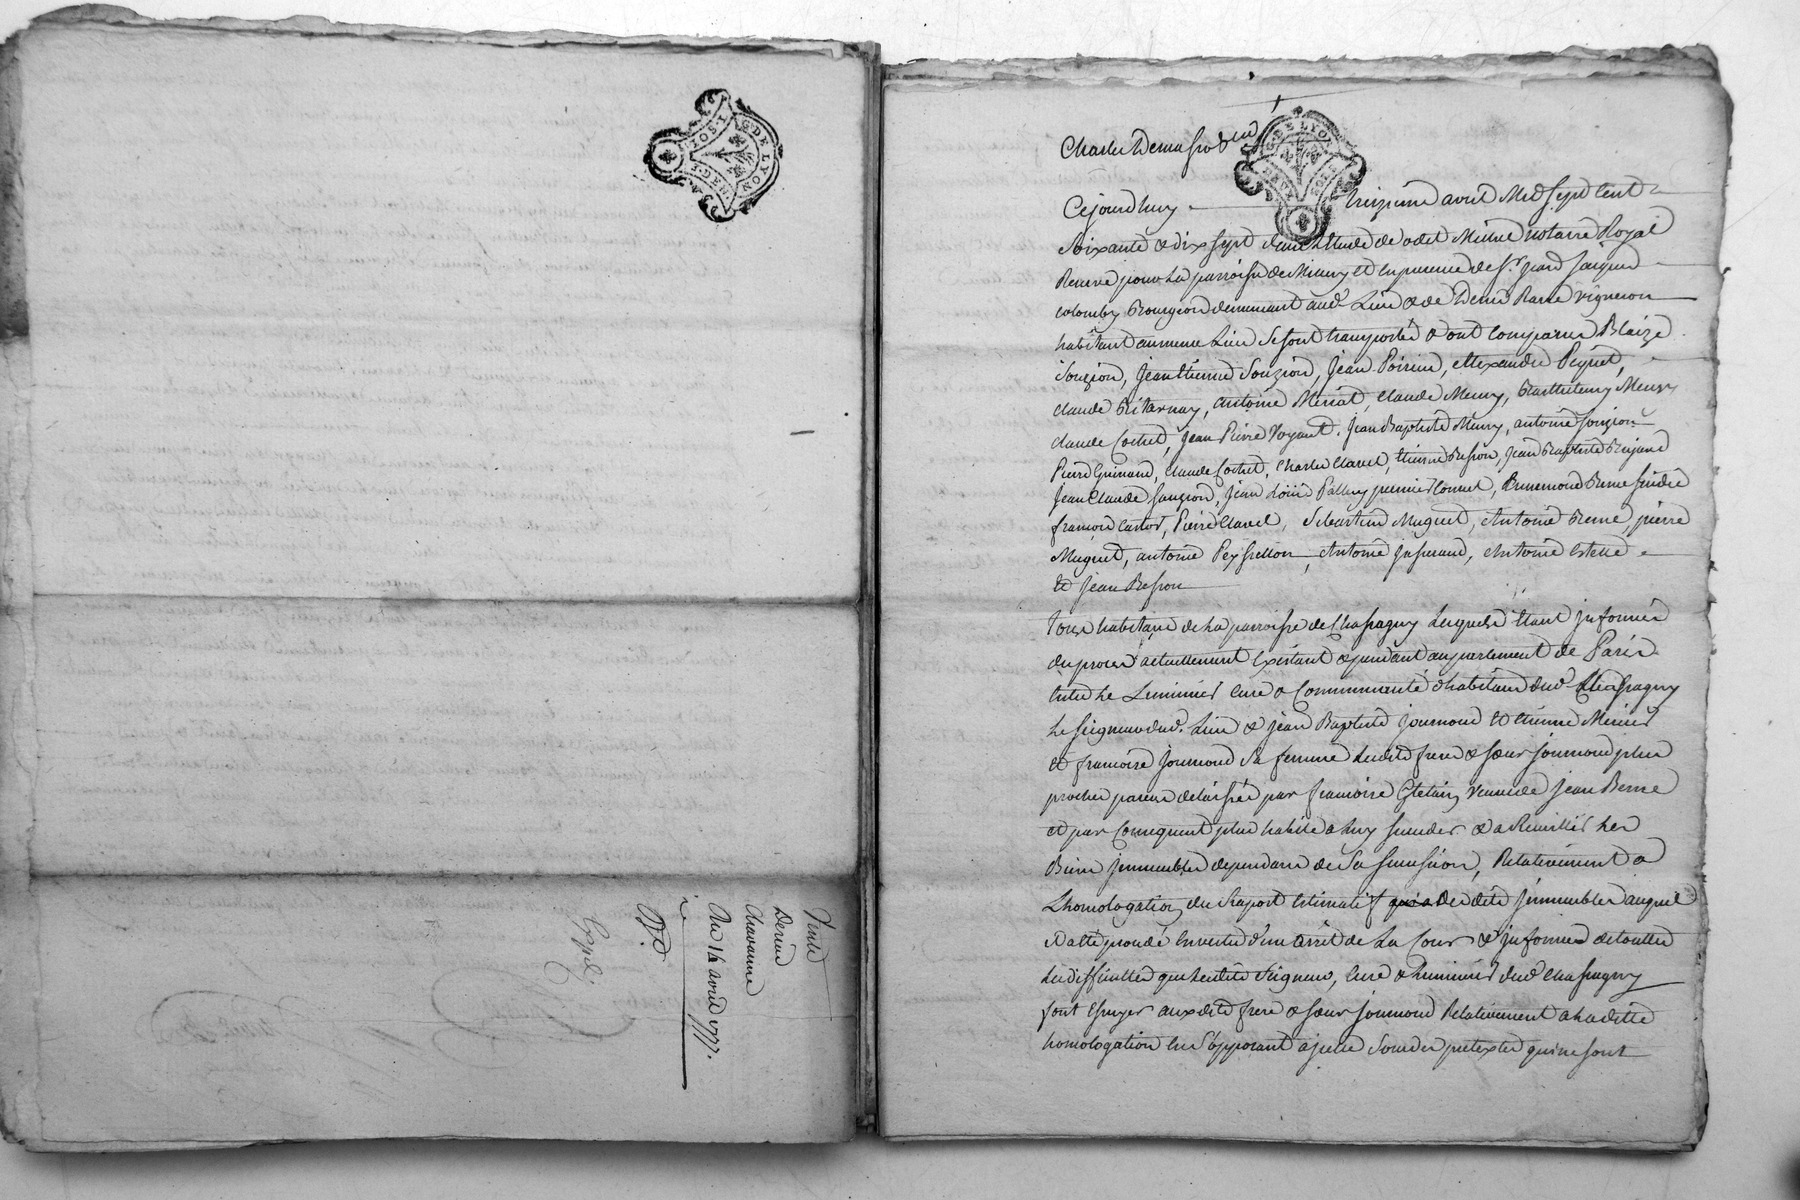 G. DE LYON
Vente
Derieu
Chavanne
Du 14 avril 1777.
Expé.
G. DE LYON
Charles
Cejourdhuy treizieme avril Mil Sept Cent
Soixante & dix sept dans L'Etude de notaire Royal
Reservé pour La parroisse de Millery et en presence de Sr. jean jacques
colomby Bourgeois demeurant aud. Lieu & de Denis vigneron
habitant au meme Lieu Se sont transportés & ont Comparus Blaize
Souzion, Jean Etienne Souzion, Jean Poirier, Alexandre Peguet,
claude antoine claude Meury, Barthelemy Meury
claude Cochet, Jean Pierre Voyant, Jean Baptiste Meury, antoine Souzion
Pierre Guinand, claude Cochet, Charles Clavel, Etienne Besson, Jean Baptiste
Jean Claude Souzion, Jean Loüis premier Consul, Berne sindic
françois Pierre Clavel, Sebastien Muguet, Antoine Berne, pierre
Muguet, antoine Peyssellon, Antoine Antoine
Et jean Besson
Tous habitans de La parroisse de Chassagny Lesquels Etant jnformés
du procès actuellement Existant & pendant au parlement de Paris
Entre Le Luminier Curé & Communauté d'habitans dud. Chassagny
Le Seigneur dud. Lieu & jean Baptiste journoud Et Etienne
Et françoise Journoud Sa femme Lesdits frere & Sœur journoud plus
proches parens delaissés par françoise veuve de jean Berne
et par Consequent plus habile a luy Succeder & a Receuillir Les
Biens jmmeubles dependans de Sa Succession, Relativement a
L'homologation du Raport Estimatif desdits jmmeubles auquel
Il a Eté procedé En vertu d'un arrêt de La Cour & jnformés de toutes
Les difficultés que Lesdits Seigneur, Curé & Luminier dud. Chassagny
font Essuyer auxdits frere & Sœur journoud Relativement a Laditte
homologation En S'opposant a jcelle Sous des pretextes qui ne sont